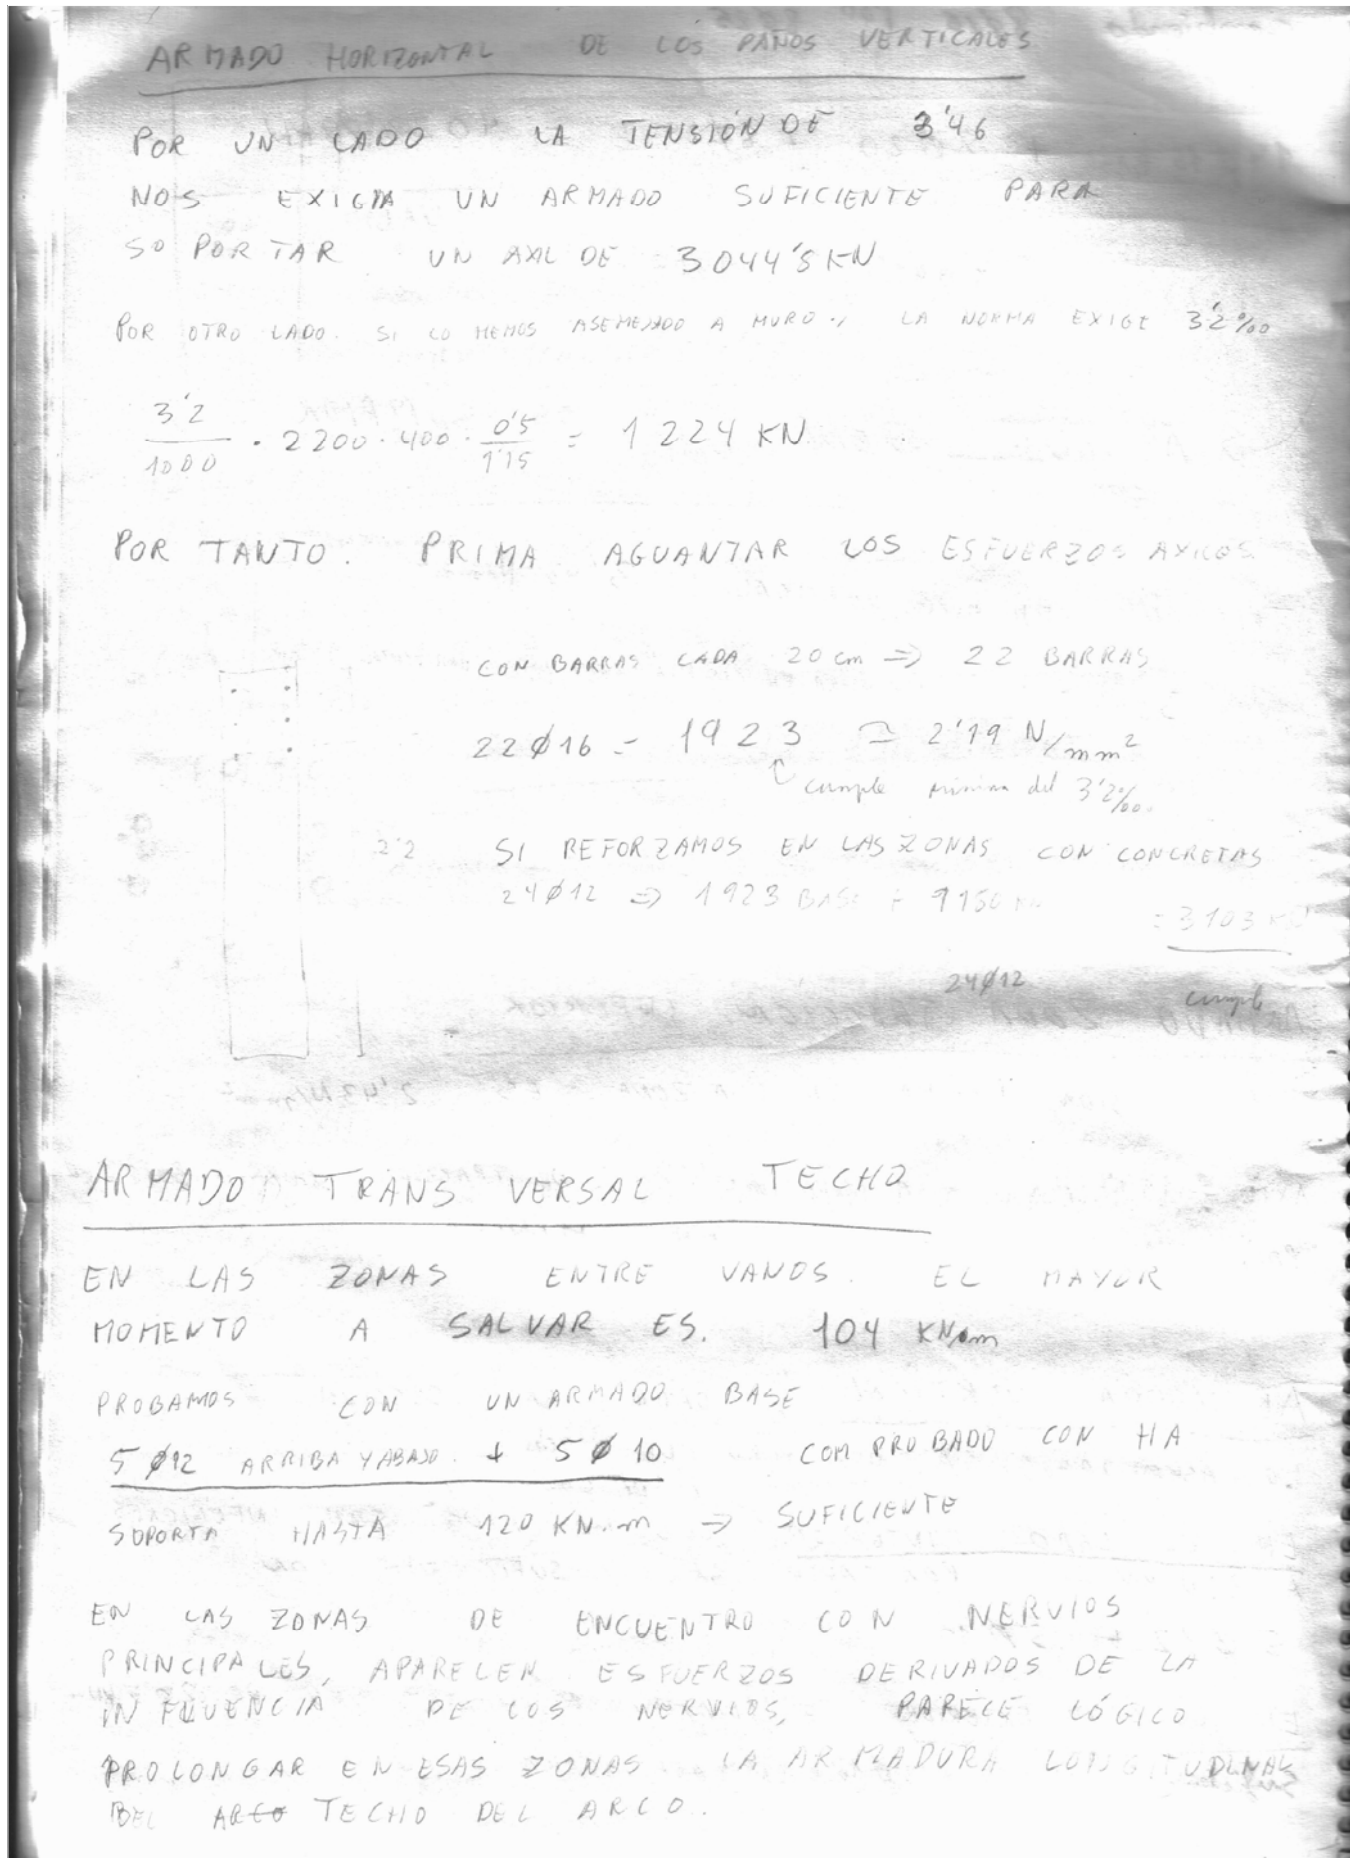 ARMADO HORIZONTAL DE LOS PAÑOS VERTICALES
POR UN LADO LA TENSIÓN DE 3'46
NOS EXIGIA UN ARMADO SUFICIENTE PARA
SOPORTAR UN AXIL DE 3044'5 KN
POR OTRO LADO. SI LO HEMOS ASEMEJADO A MURO., LA NORMA EXIGE 3'2‰
3'2/1000 · 2200 · 400 · 0'5/1'15 = 1224 KN
POR TANTO. PRIMA AGUANTAR LOS ESFUERZOS AXILES.
CON BARRAS CADA 20 cm => 22 BARRAS
22ø16 = 1923 ≃ 2'19 N/mm²
cumple minima del 3'2‰.
2'2
SI REFORZAMOS EN LAS ZONAS CON CONCRETAS
24ø12 => 1923 BASE + 1150 = 3103 KN
24ø12 cumple
ARMADO TRANSVERSAL TECHO
EN LAS ZONAS ENTRE VANOS. EL MAYOR
MOMENTO A SALVAR ES. 104 KN·m
PROBAMOS CON UN ARMADO BASE
5 ø12 ARRIBA Y ABAJO + 5 ø 10 COMPROBADO CON HA
SOPORTA HASTA 120 KN·m => SUFICIENTE
EN LAS ZONAS DE ENCUENTRO CON NERVIOS
PRINCIPALES, APARECEN ESFUERZOS DERIVADOS DE LA
INFLUENCIA DE LOS NERVIOS, PARECE LÓGICO
PROLONGAR EN ESAS ZONAS LA ARMADURA LONGITUDINAL
DEL ARCO TECHO DEL ARCO.